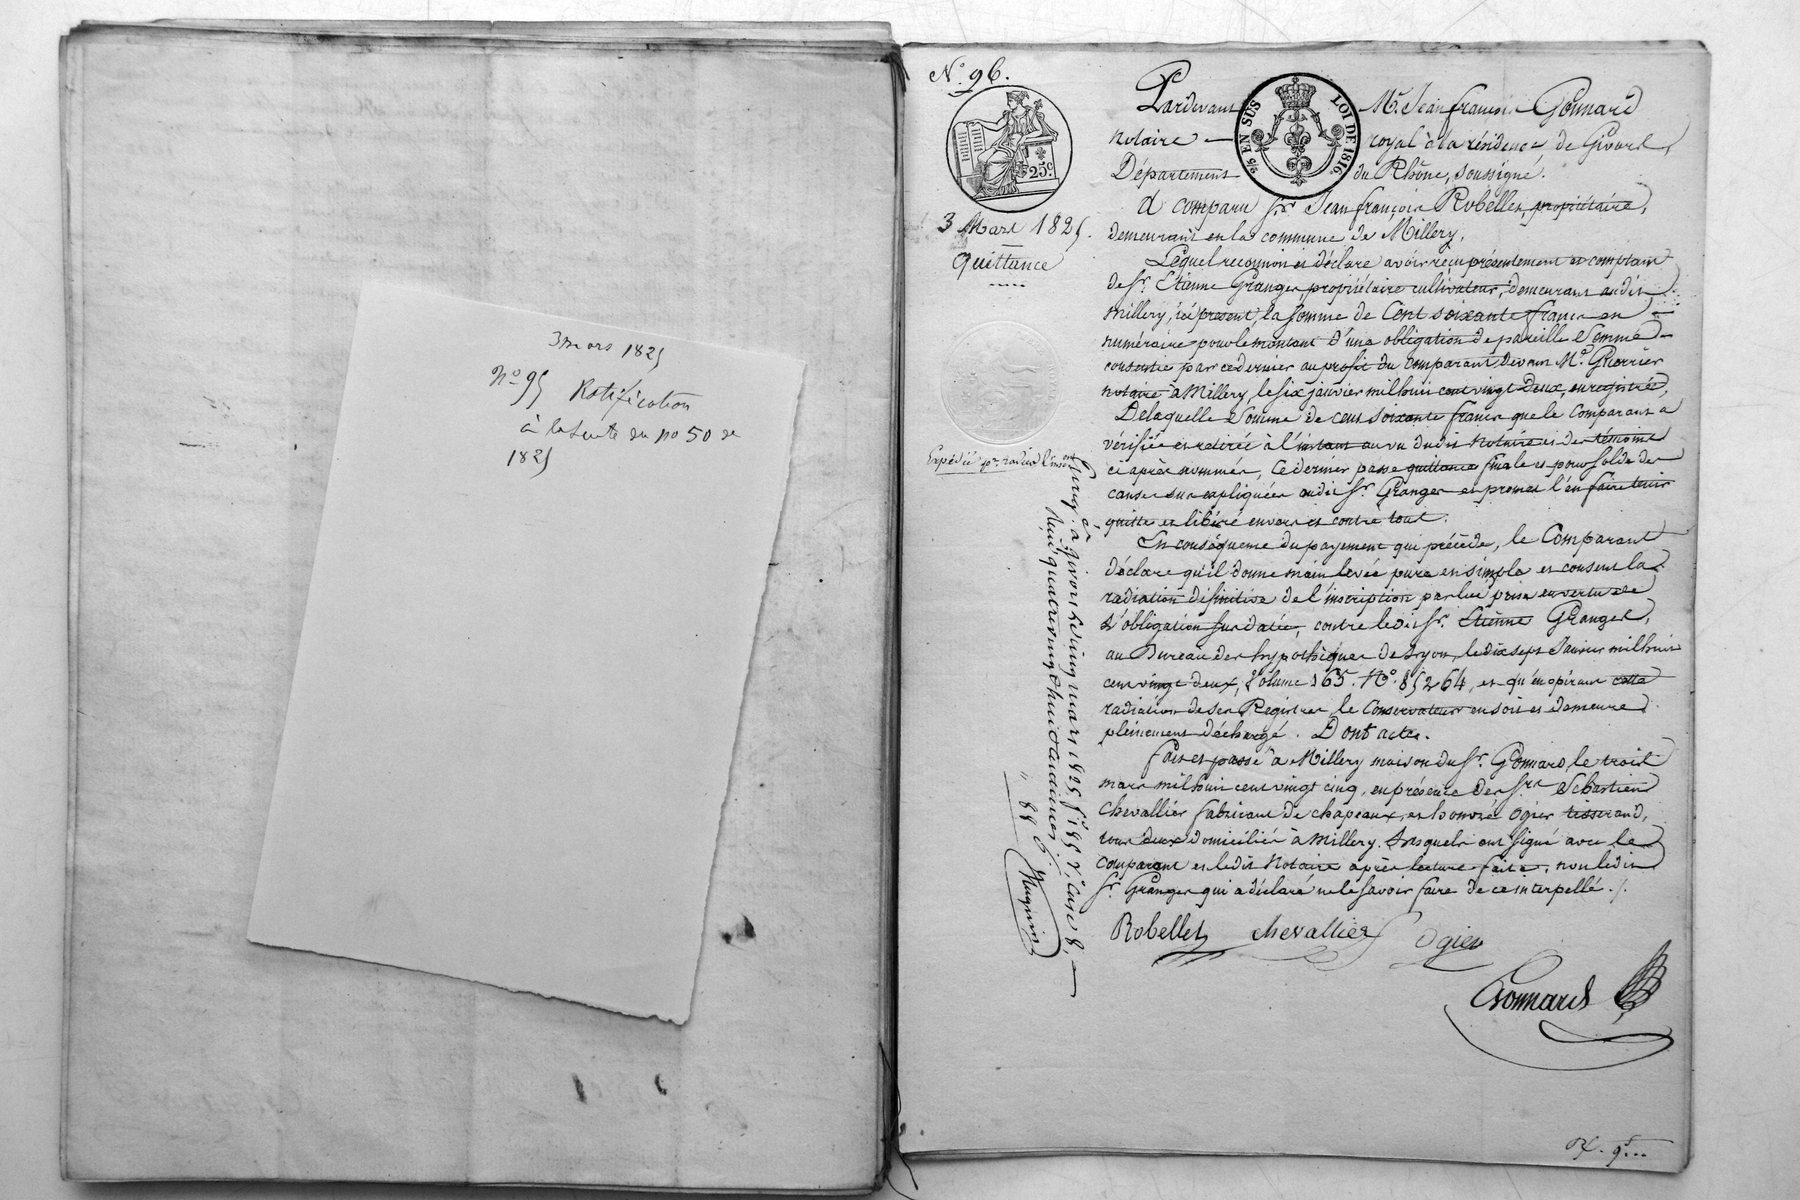 3 mars 1825
n° 95 Ratification
à la suite du no 50 de
1825
N.° 96.
25.c
2/5 EN SUS LOI DE 1816
3 Mars 1825.
Quittance
Expédié pr. radier l'inson
Pardevant Me. Jean françois Gonnard
notaire royal à la résidence de Givors,
Département du Rhône, soussigné.
A comparu sr. Jean françois Robellet, propriétaire,
demeurant en la commune de Millery,
Lequel reconnoit et déclare avoir reçu présentement et comptant
de Sr. Etienne Granger, propriétaire cultivateur, demeurant audit
Millery, ici présent, la somme de Cent soixante francs en
numéraire pour le montant d'une obligation de pareille somme
consentie par ce dernier au profit du comparant devant Me. Guerrier
notaire à Millery, le six janvier mil huit cent vingt deux, enregistrée,
De laquelle somme de cent soixante francs que le Comparant a
vérifiée et retirée à l'instant au vu dudit notaire et des témoins
ci après nommés, Ce dernier passe quittance finale et pour solde des
causes sus expliquées audit Sr. Granger et promet l'en faire tenir
quitte et libéré envers et contre tous.
En conséquence du payement qui précède, le Comparant
déclare qu'il donne main levée pure en simple et consent la
radiation définitive de l'inscription par lui prise en vertu de
L'obligation sus datée, contre ledit Sr. Etienne Granger,
au Bureau des hypothèques de Lyon, le dix sept Janvier mil huit
cent vingt deux, Volume 165. No. 85264, et qu'en opérant cette
radiation de ses Registres le Conservateur en soit et demeure
pleinement déchargé. Dont acte.
Fait et passé à Millery maison du Sr. Gonnard, le trois
mars mil huit cent vingt cinq, en présence des Srs Sébastien
Chevallier fabricant de chapeaux, et honoré Ogier tisserand,
tous deux domiciliés à Millery. Lesquels ont signé avec le
comparant et ledit Notaire après lecture faite, non ledit
Sr. Granger qui a déclaré ne le savoir faire de ce interpellé ./.
Robellet chevallier Ogier
Gonnard
Enreg. à Givors le cinq mars 1825 f° 188 V°. case 8,
Reçu quatre vingt huit centimes
" 88 c.